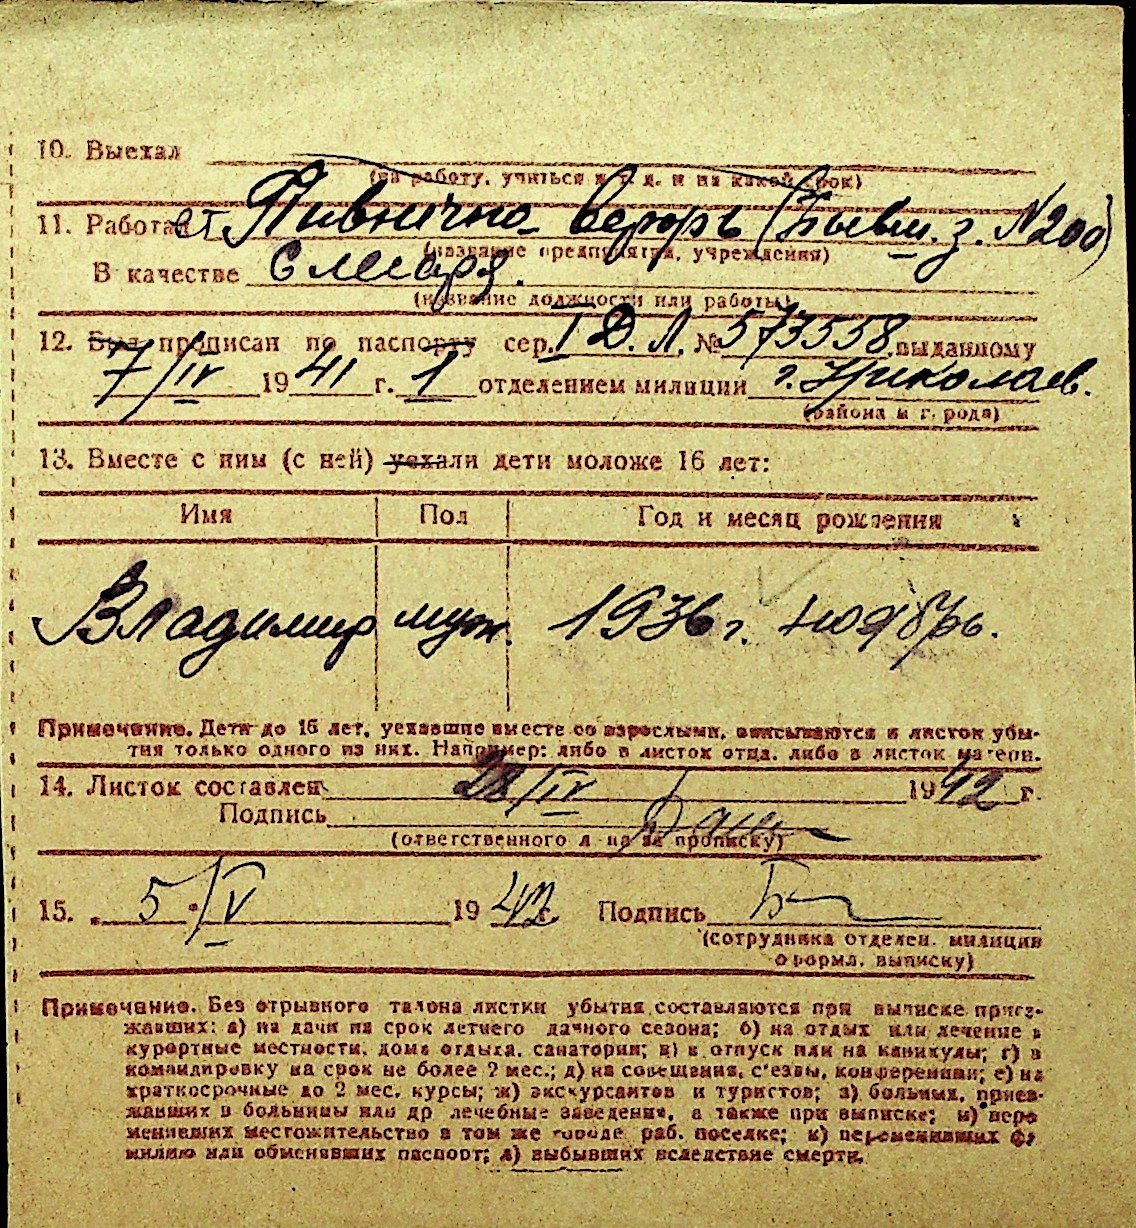 10. Выехал
(на работу, учиться и т. д. и на какой срок)
11. Работал ст. Пивнично верфь (Бывш. з. №200)
(название предприятия, учреждения)
В качестве Слесаря.
(название должности или работы)
12. Был прописан по паспорту сер. I Д. Л. № 573558 выданному
7/IV 1941 г. 1 отделением милиции г. Николаев.
(района и города)
13. Вместе с ним (с ней) уехали дети моложе 16 лет:
Имя Пол Год и месяц рождения
Владимир муж. 1936 г. ноябрь.
Примечание. Дети до 16 лет, уехавшие вместе со взрослыми, вписываются в листок убы-
тия только одного из них. Например: либо в листок отца, либо в листок матери.
14. Листок составлен 28/IV 1942 г.
Подпись
(ответственного л-ца за прописку)
15. 5/V 1942 г. Подпись
(сотрудника отделен. милиции
оформл. выписку)
Примечание. Без отрывного талона листки убытия составляются при выписке приез-
жавших: а) на дачи на срок летнего дачного сезона; б) на отдых или лечение в
курортные местности, дома отдыха, санатории; в) в отпуск или на каникулы; г) в
командировку на срок не более 2 мес.; д) на совещания, с'езды, конференции; е) на
краткосрочные до 2 мес. курсы; ж) экскурсантов и туристов; з) больных, приез-
жавших в больницы или др лечебные заведения, а также при выписке; и) пере
менивших местожительство в том же городе раб. поселке; к) переменивших фа
милию или обменявших паспорт; л) выбывших вследствие смерти.